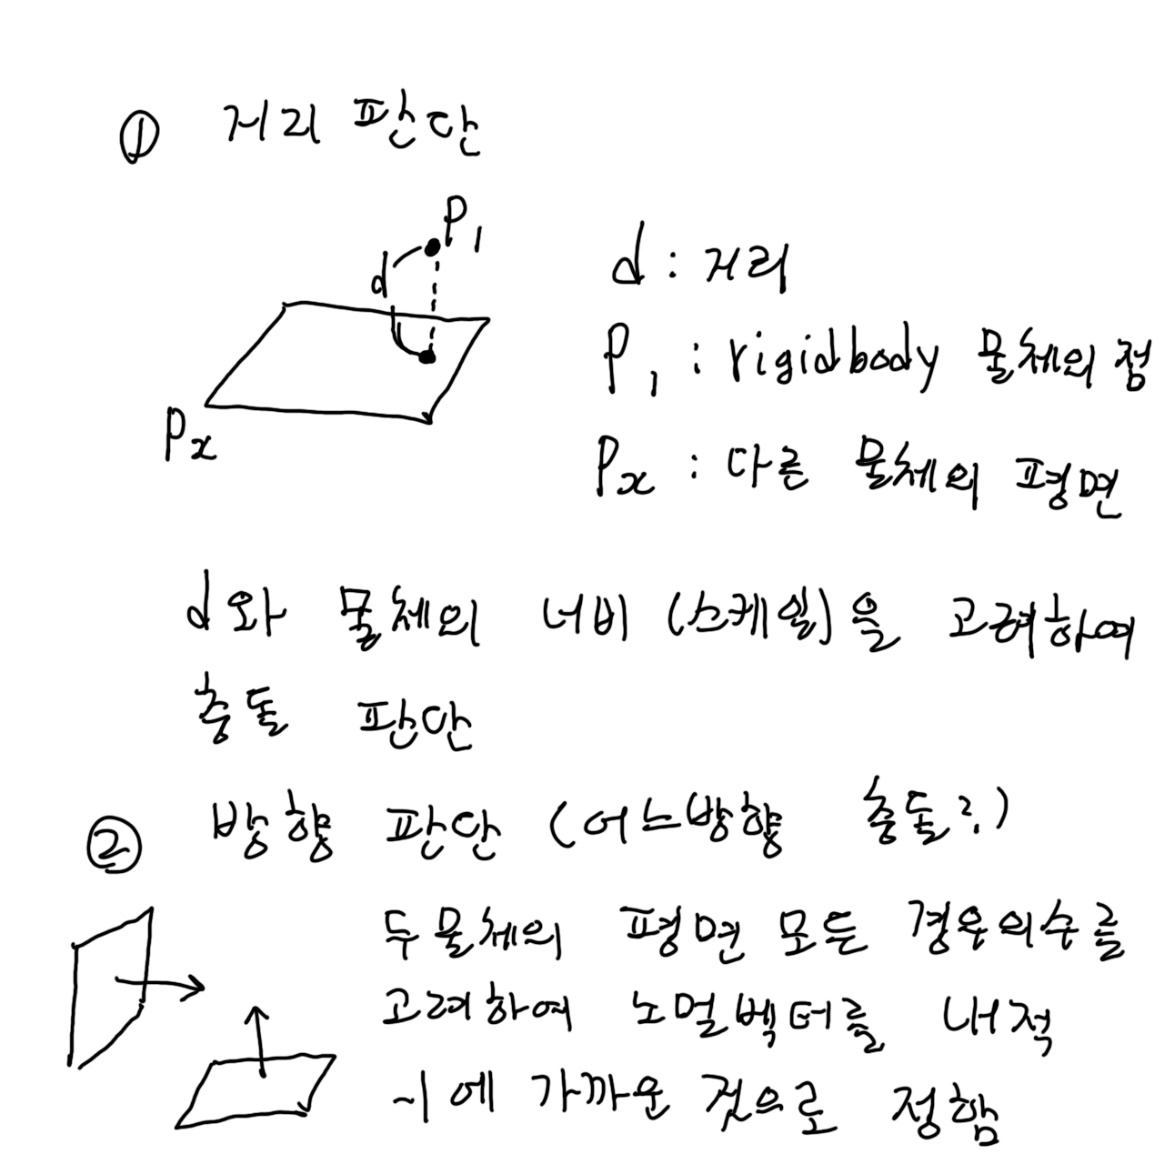 ① 거리 판단
P1
d
Px
d : 거리
P1 : rigidbody 물체의 점
Px : 다른 물체의 평면
d와 물체의 너비 (스케일)을 고려하여
충돌 판단
② 방향 판단 (어느방향 충돌?)
두물체의 평면 모든 경우의수를
고려하여 노멀벡터를 내적
-1에 가까운 것으로 정함